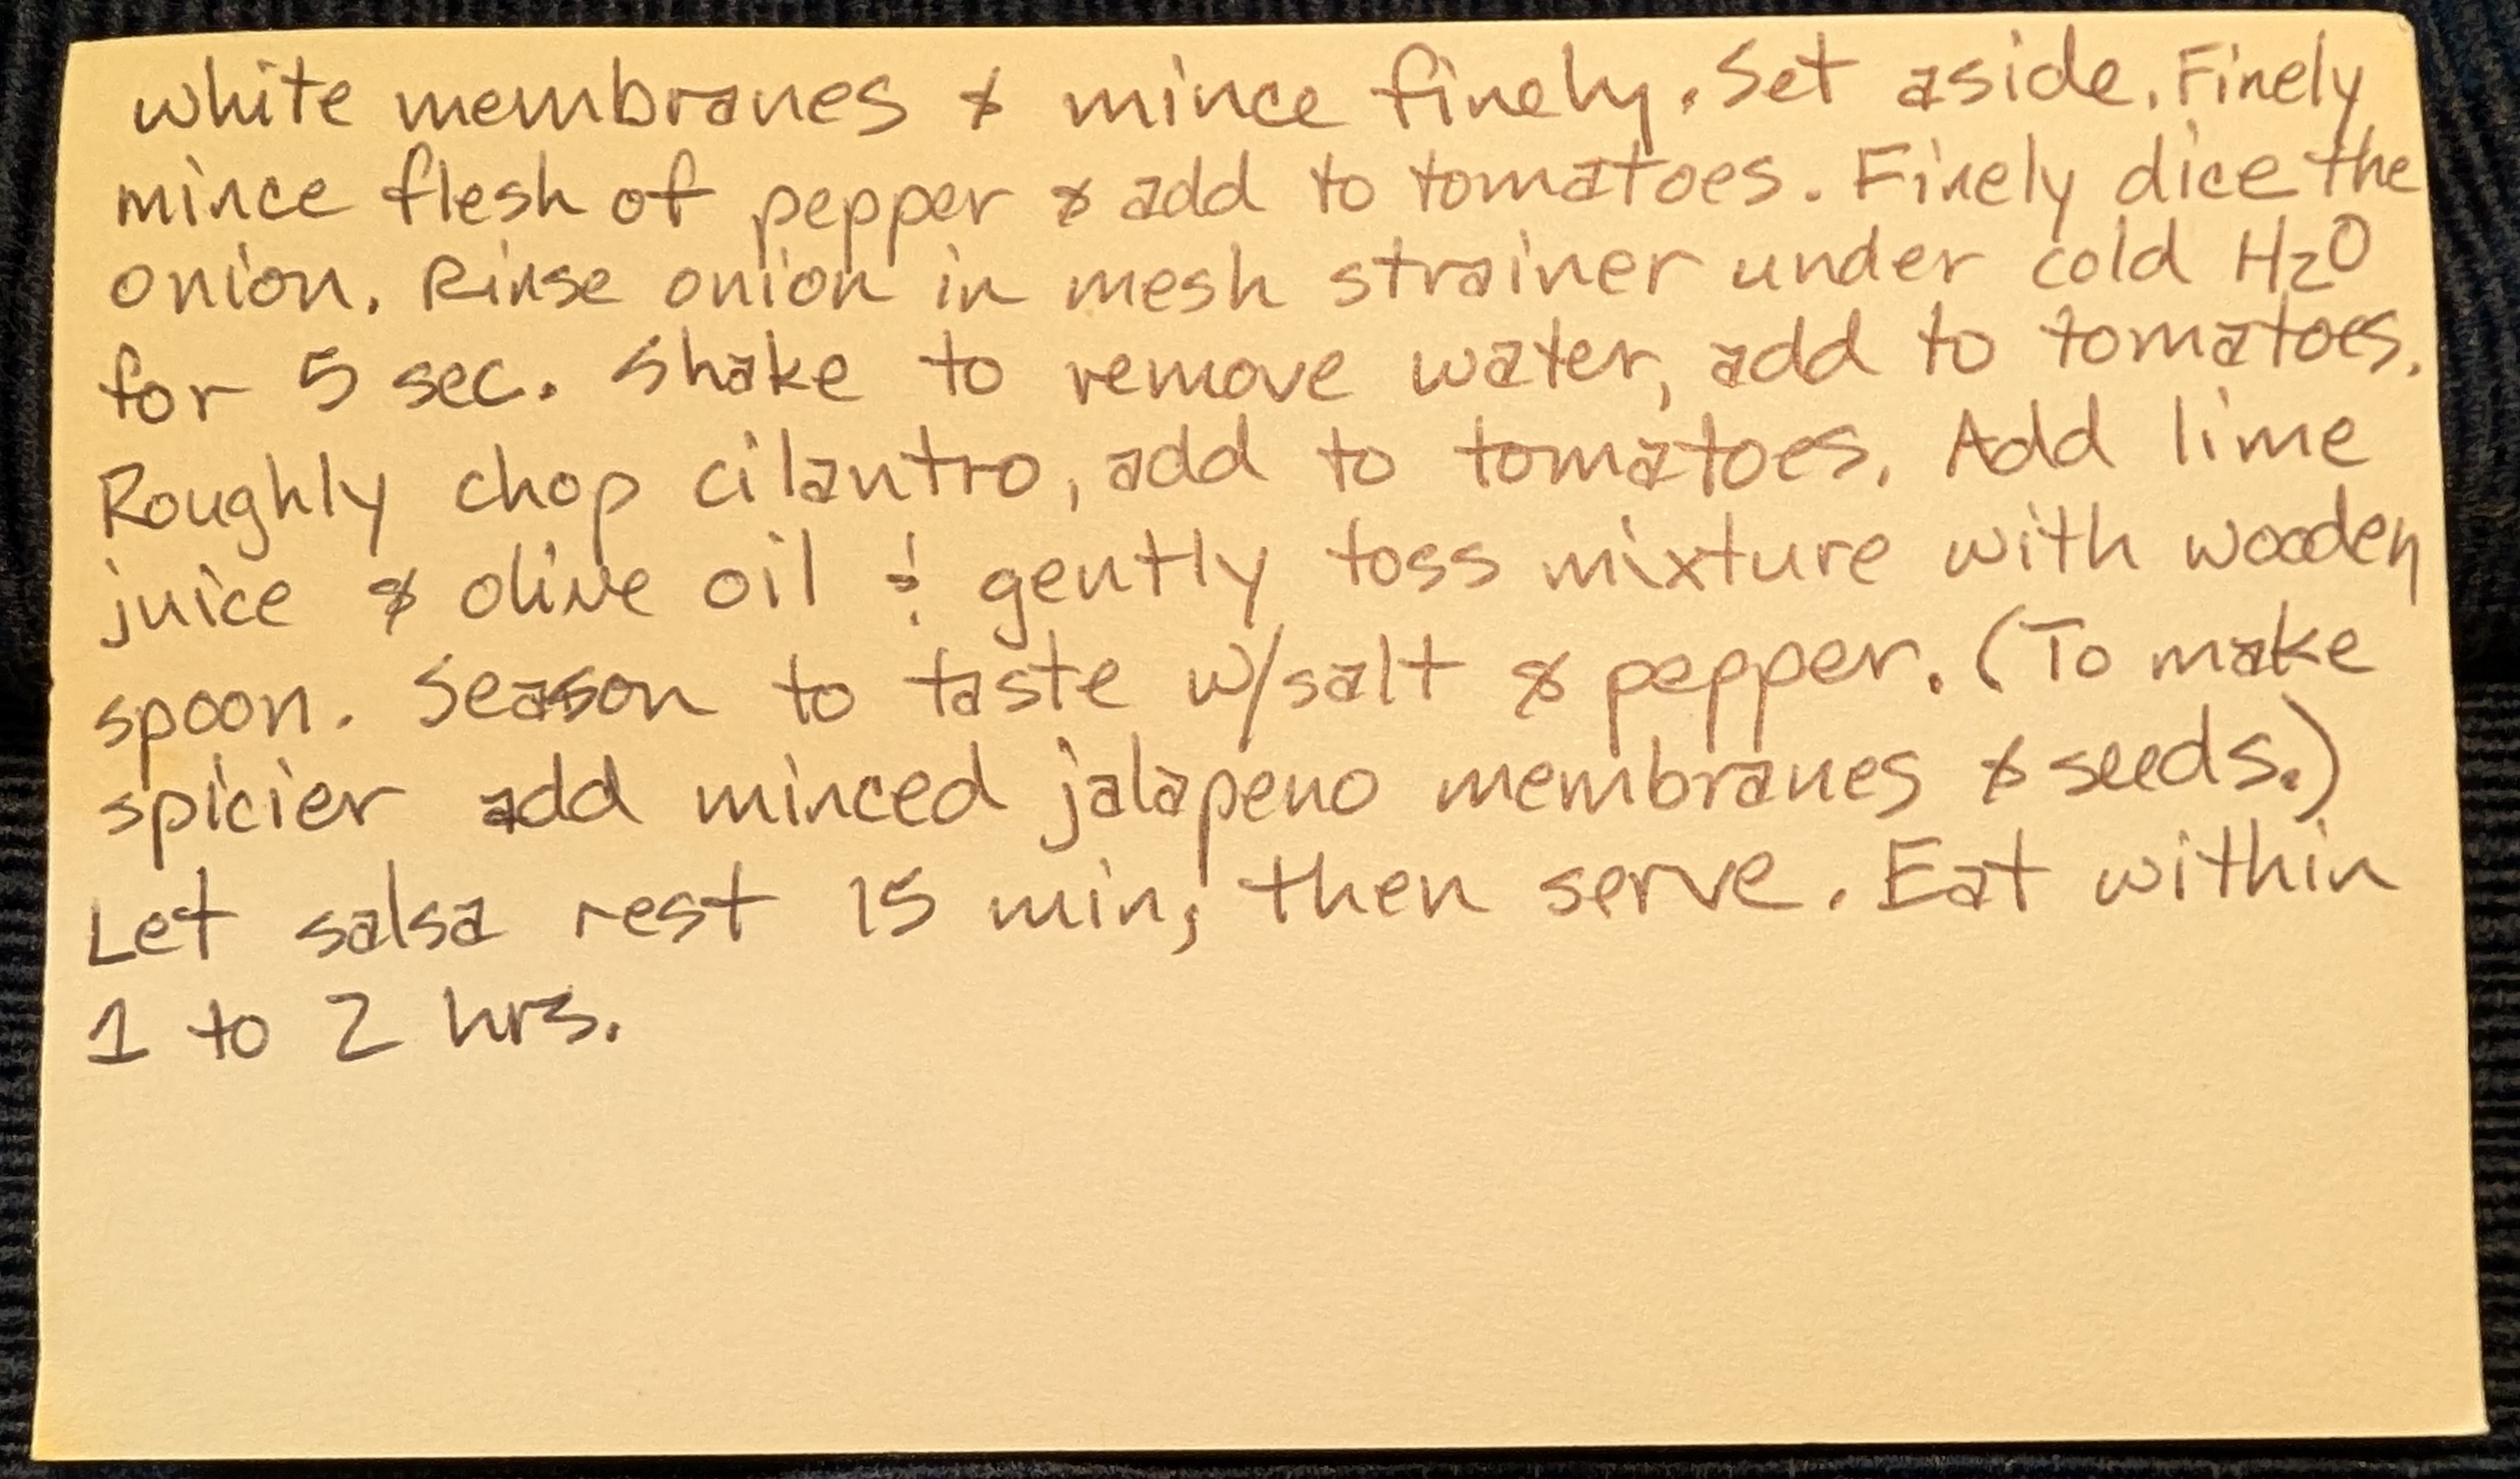 white membranes & mince finely. Set aside. Finely
mince flesh of pepper & add to tomatoes. Finely dice the
onion. Rinse onion in mesh strainer under cold H2O
for 5 sec. Shake to remove water, add to tomatoes.
Roughly chop cilantro, add to tomatoes. Add lime
juice & olive oil & gently toss mixture with wooden
spoon. Season to taste w/salt & pepper. (To make
spicier add minced jalapeno membranes & seeds.)
Let salsa rest 15 min, then serve. Eat within
1 to 2 hrs.